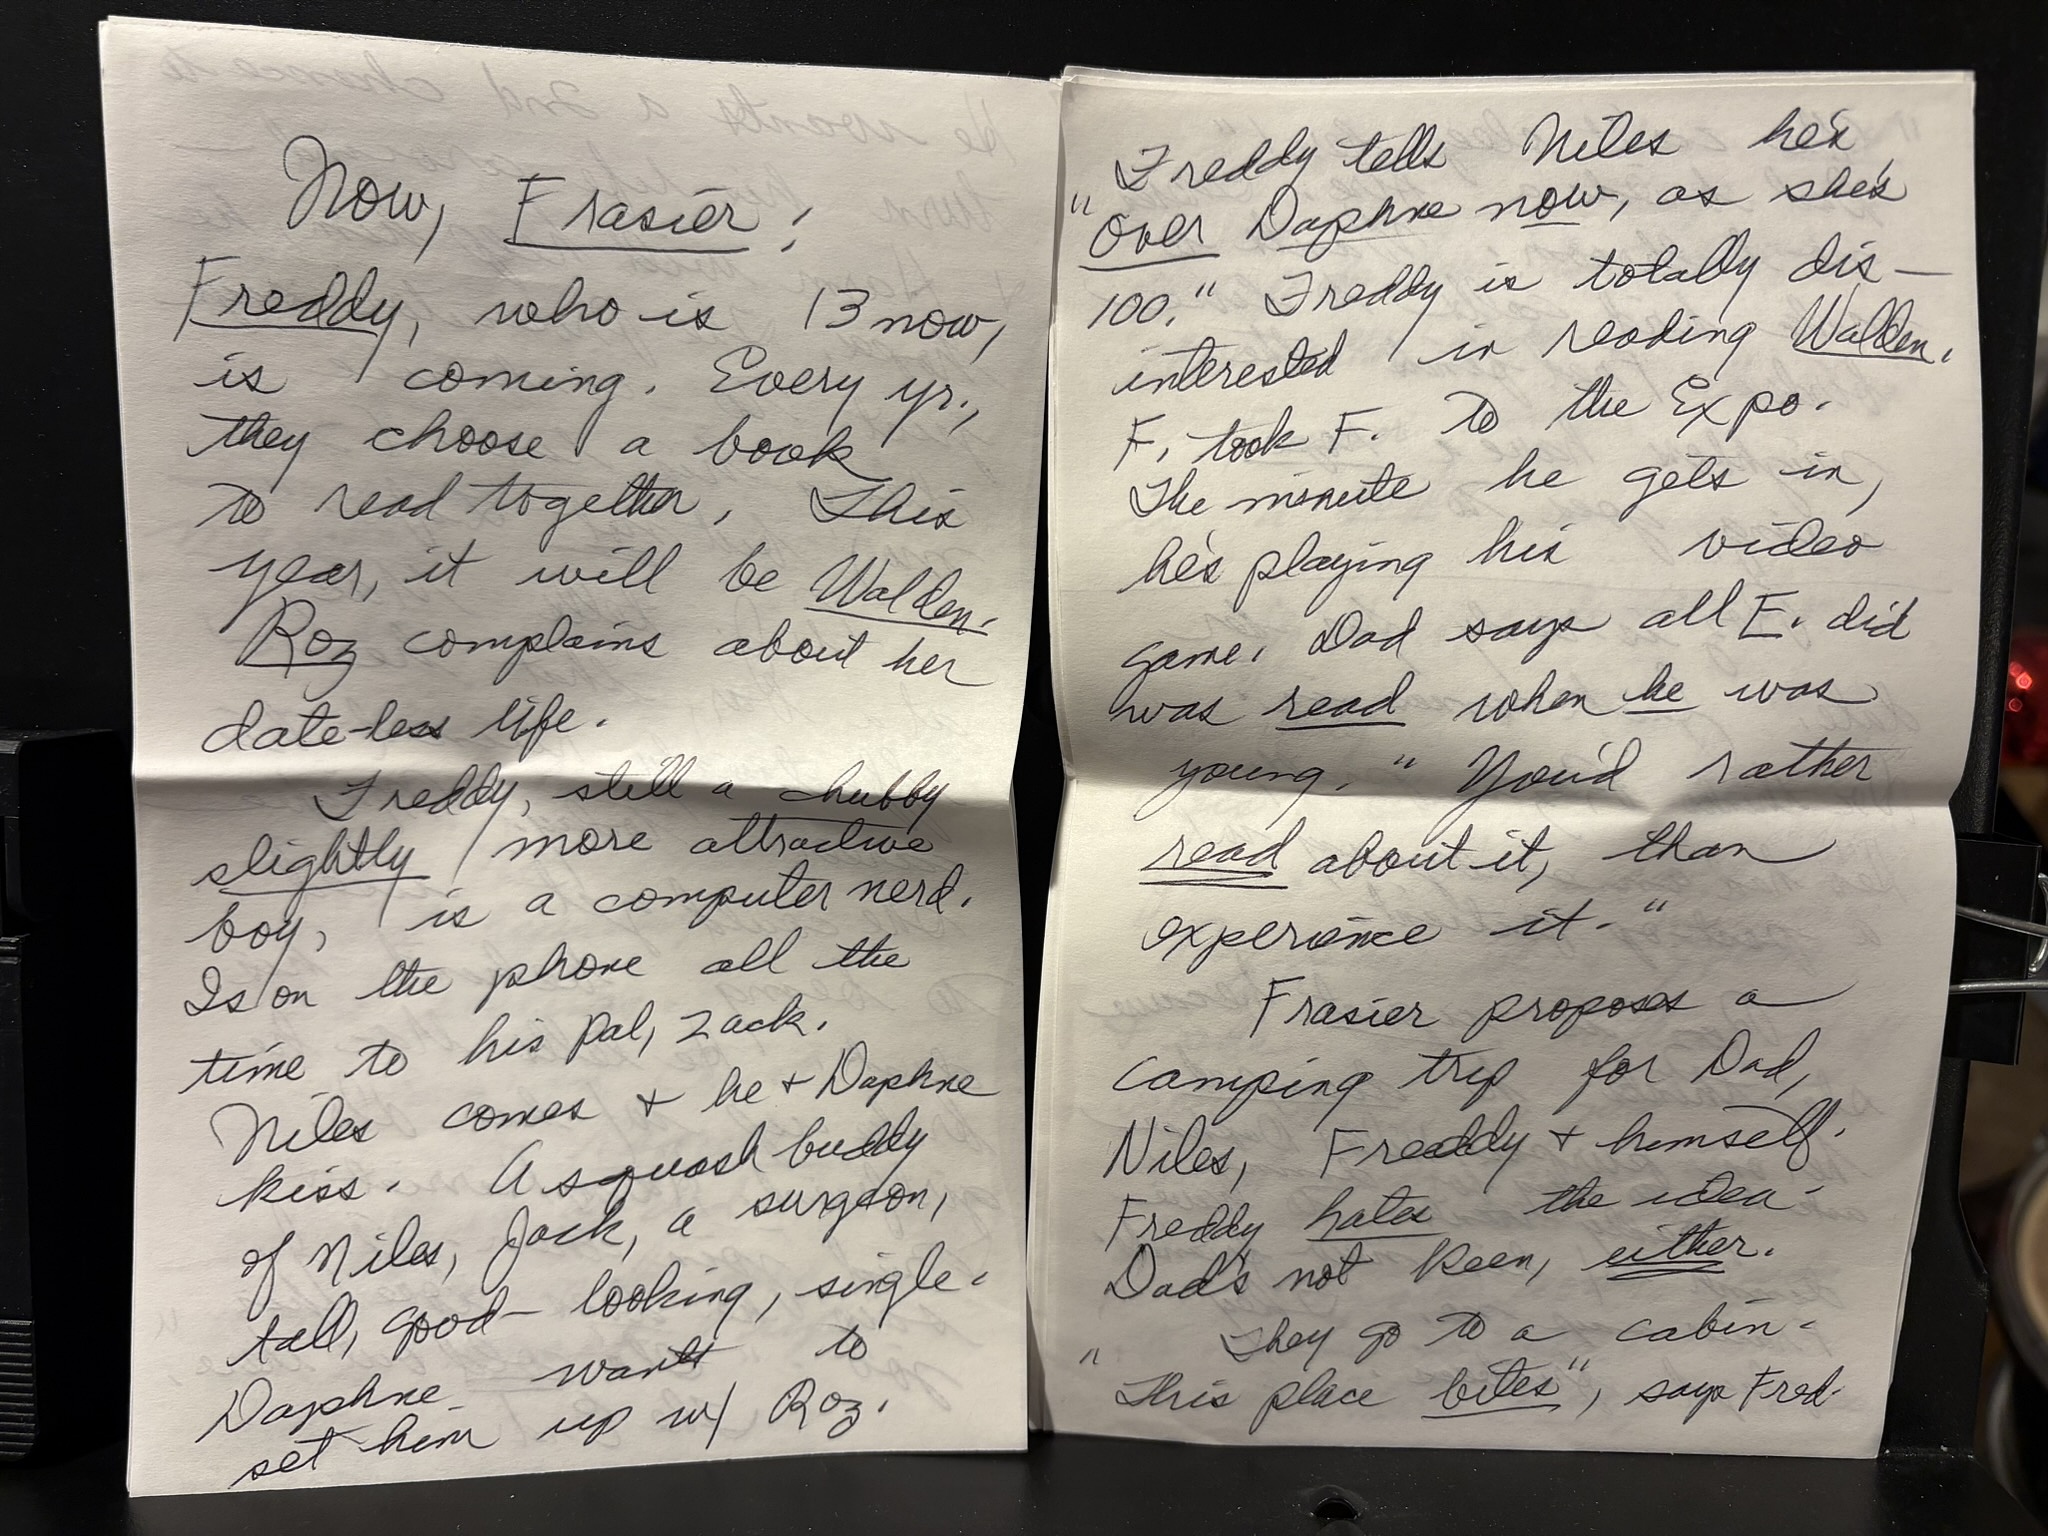 Now, Frasier:
Freddy, who is 13 now,
is coming. Every yr.,
they choose a book
to read together. This
year, it will be Walden.
Roz complains about her
date-less life.
Freddy, still a chubby
slightly more attractive
boy, is a computer nerd.
Is on the phone all the
time to his pal, Zack.
Niles comes + he + Daphne
kiss. A squash buddy
of Niles, Jack, a surgeon,
tall, good-looking, single.
Daphne wants to
set him up w/ Roz.
Freddy tells Niles he's
"over Daphne now, as she's
100." Freddy is totally dis-
interested in reading Walden.
F. took F. to the Expo.
The minute he gets in,
he's playing his video
game. Dad says all F. did
was read when he was
young. "You'd rather
read about it, than
experience it."
Frasier proposes a
camping trip for Dad,
Niles, Freddy + himself.
Freddy hates the idea.
Dad's not keen, either.
They go to a cabin.
"This place bites", says Fred.